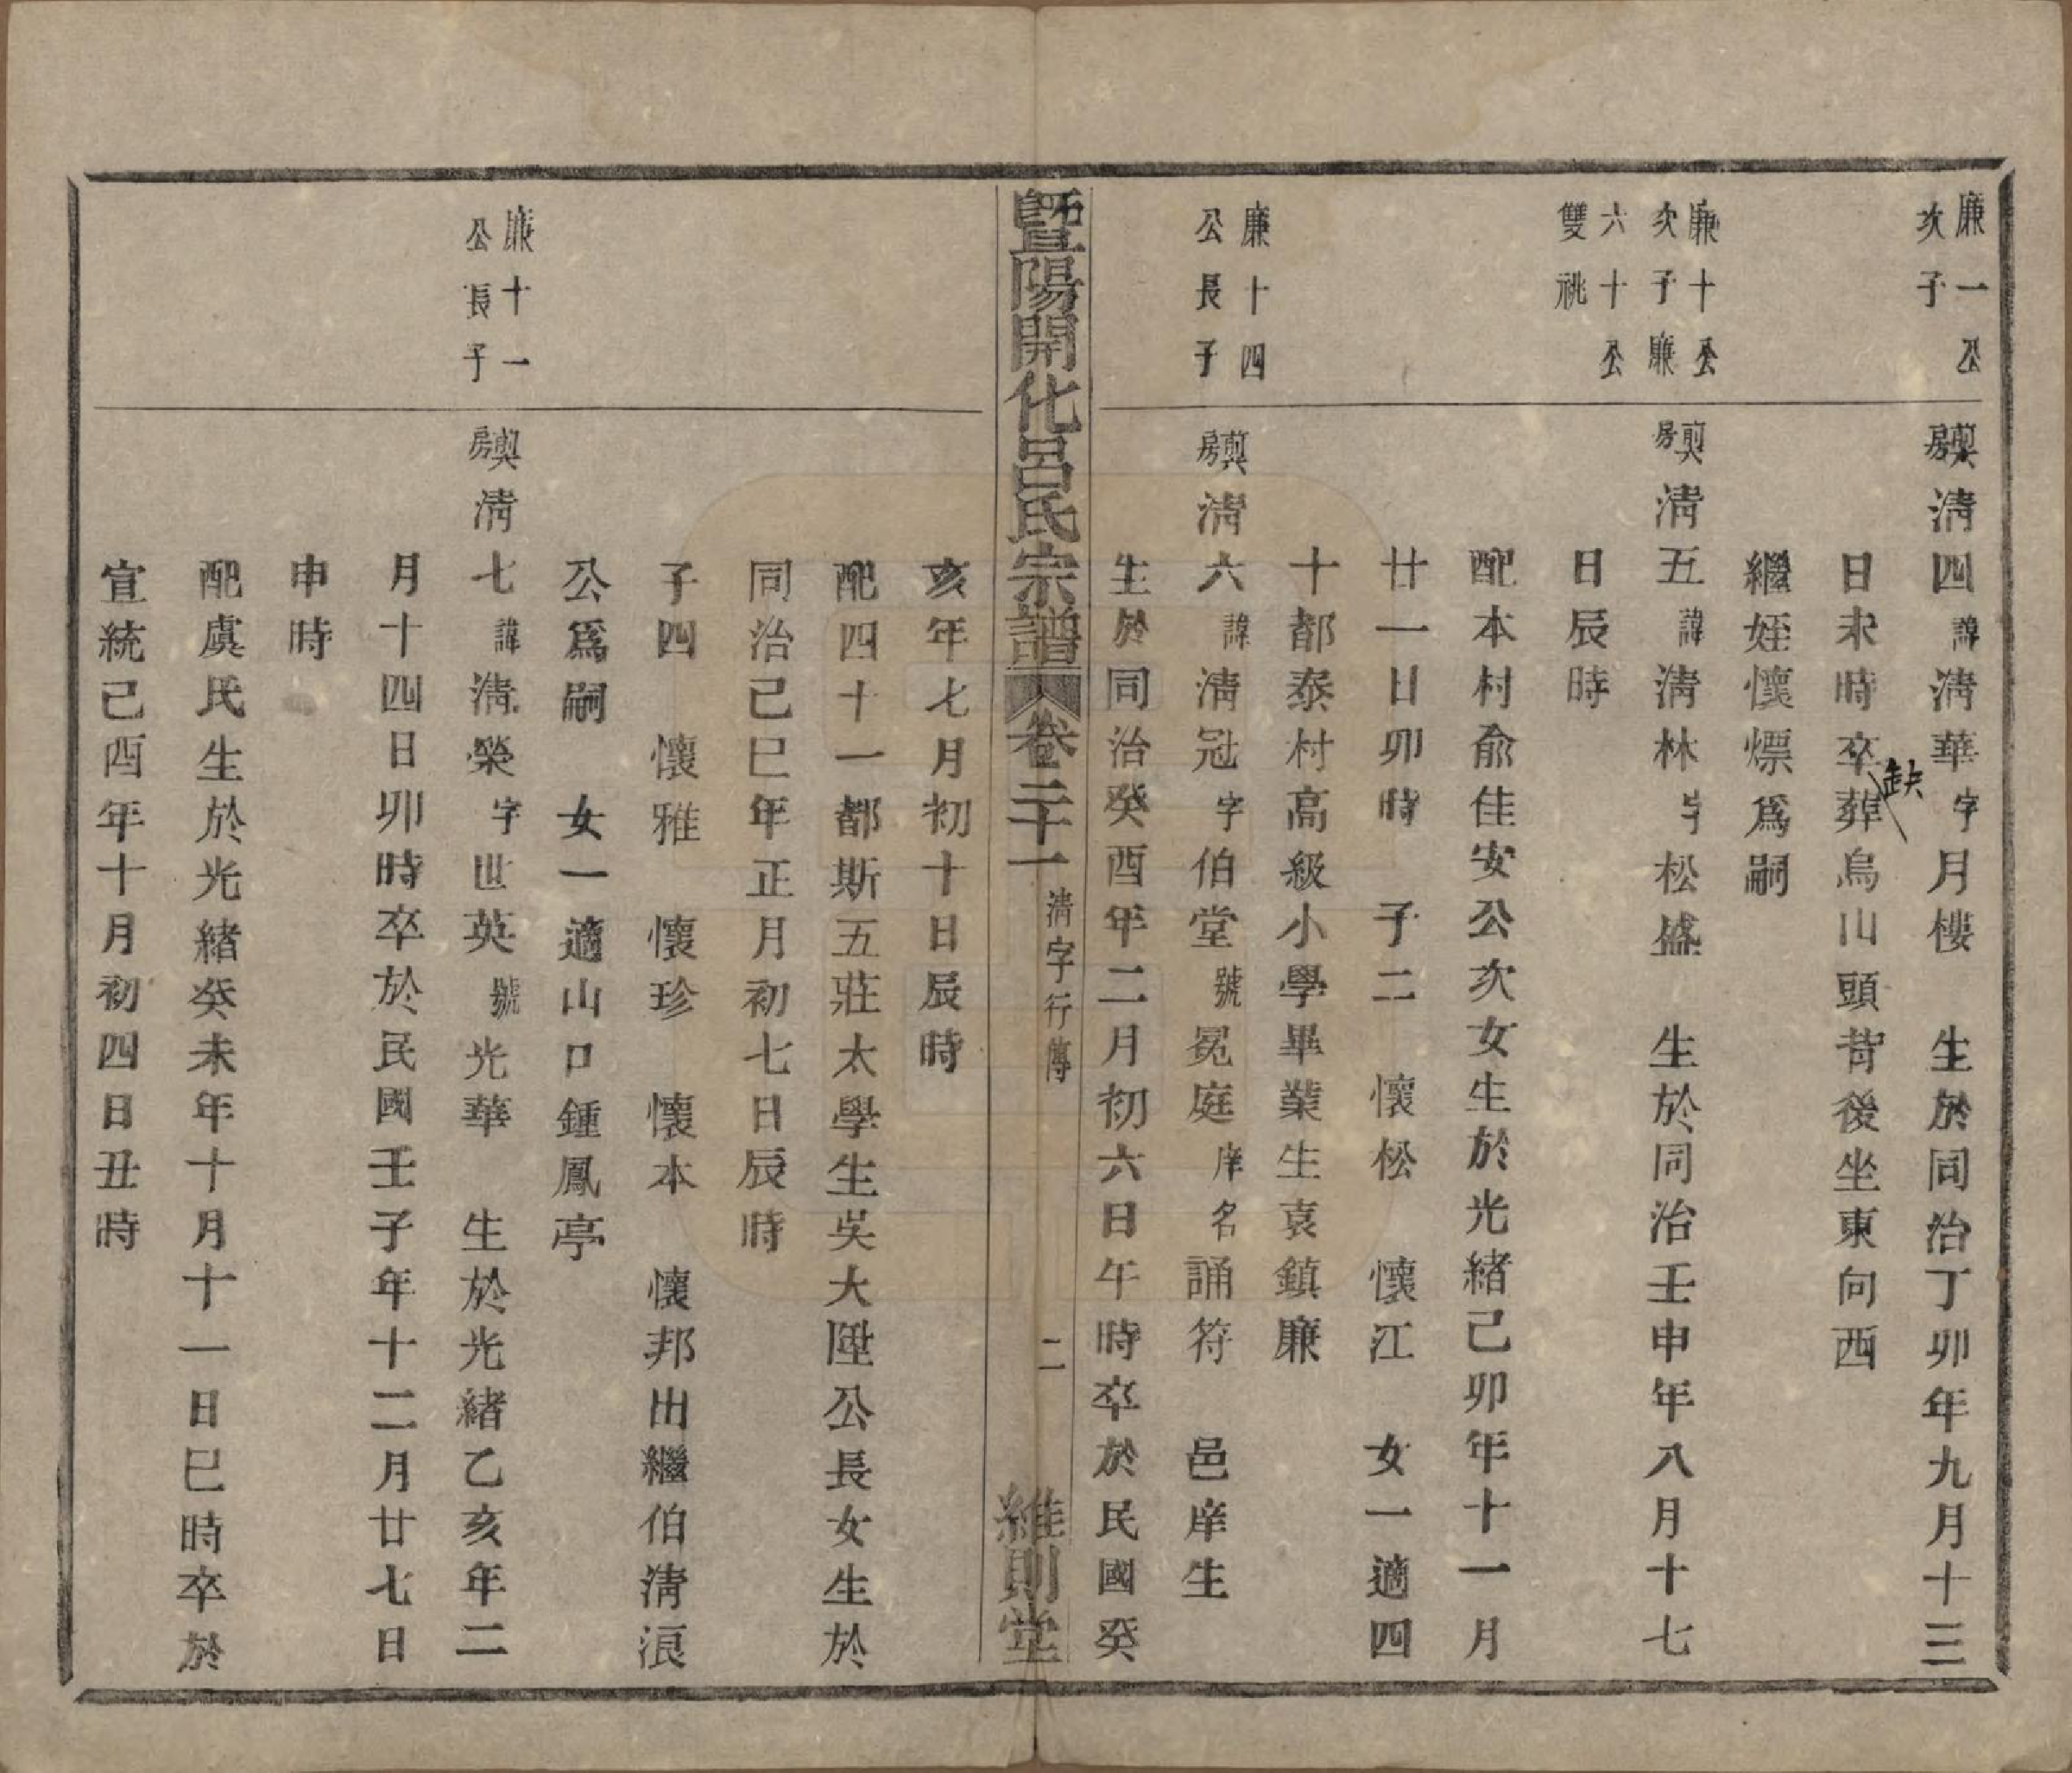 廉一公
次子
𠔥房清四諱清華字月樓　生於同治丁卯年九月十三
日未時卒缺葬烏山頭背後坐東向西
繼姪懷熛爲嗣
廉十公
次子廉
六十公
雙祧
房清五諱清林字松盛　生於同治壬申年八月十七
日辰時
配本村俞佳安公次女生於光緒己卯年十一月
廿一日卯時　子二　懷松　懷江　女一適四
十都泰村高級小學畢業生袁鎮廉
廉十四
公長子
房清六諱清冠字伯堂號冕庭庠名誦符　邑庠生
生於同治癸酉年二月初六日午時卒於民國癸
暨陽開化呂氏宗譜　卷二十一　清字行傳　二　維則堂
亥年七月初十日辰時
配四十一都斯五莊太學生吳大陞公長女生於
同治己巳年正月初七日辰時
子四　懷雅　懷珍　懷本　懷邦出繼伯清浪
公爲嗣　女一適山口鍾鳳亭
廉十一
公長子
房清七諱清榮字世英號光華　生於光緒乙亥年二
月十四日卯時卒於民國壬子年十二月廿七日
申時
配虞氏生於光緒癸未年十月十一日巳時卒於
宣統己酉年十月初四日丑時